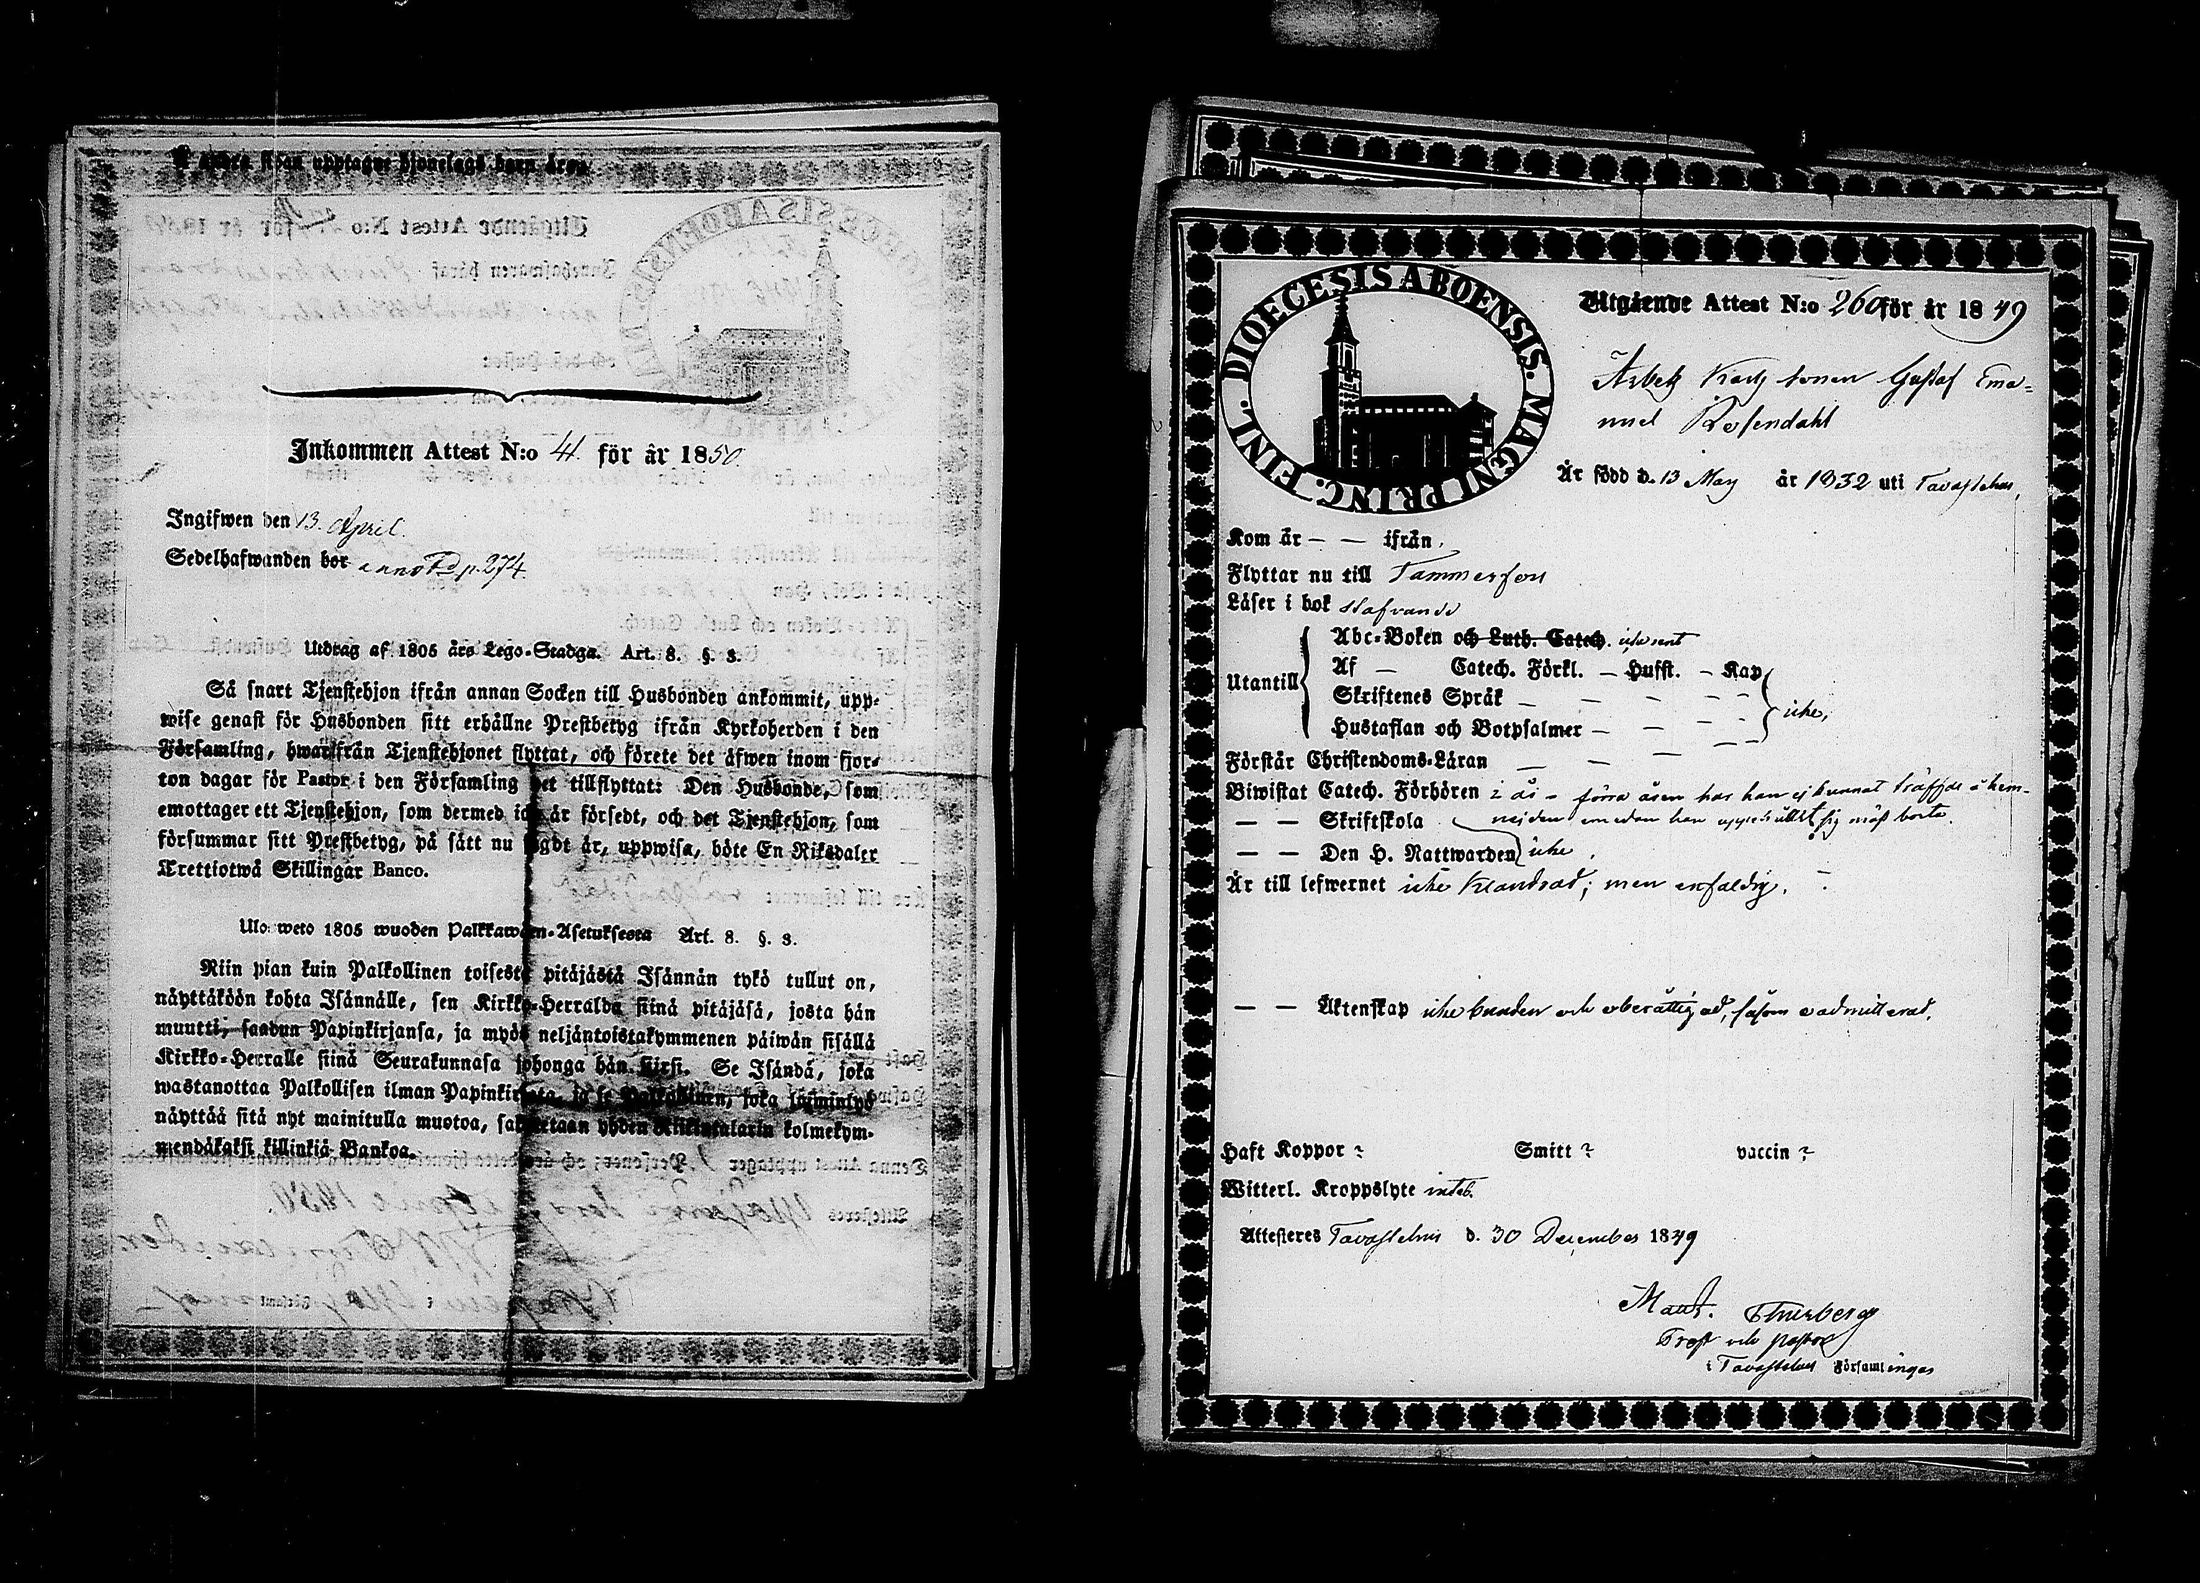 Inkommen Attest N:o 41. för år 1850.
Ingifwen den 13. April.
Sedelhafwanden bor anno p. 274.
Utdrag af 1805 års Lego-Stadga. Art. 8. §. 8.
Så snart Tjenstehjon ifrån annan Socken till Husbonden ankommit, upp-
wise genast för Husbonden sitt erhållne Prestbetyg ifrån Kyrkoherden i den
Församling, hwarifrån Tjenstehjonet flyttat, och förete det äfwen inom fjor-
ton dagar för Pastor i den Församling det tillflyttat: Den Husbonde, som
emottager ett Tjenstehjon, som dermed icke är försedt, och det Tjenstehjon, som
försummar sitt Prestbetyg, på sätt nu sagdt är, uppwisa, böte En Riksdaler
Trettiotwå Skillingar Banco.
Ulos weto 1805 wuoden Palkkawäen-Asetuksesta Art. 8. §. 8.
Niin pian kuin Palkollinen toisesta pitäjästä Isännän tykö tullut on,
näyttäköön kohta Isännälle, sen Kirkko-Herralda siinä pitäjäsä, josta hän
muutti, saadun Papinkirjansa, ja myös neljäntoistakymmenen päiwän sisällä
Kirkko-Herralle siinä Seurakunnasa johonga hän siirsi. Se Isändä, joka
wastanottaa Palkollisen ilman Papinkirjata, ja se Palkollinen, joka
näyttää sitä nyt mainitulla muotoa, sakotetaan yhden Riksintalarin kolmekym-
mendäkaksi killinkiä Bankoa.
DIOECESIS ABOENSIS. MAGNI PRINC. FINL.
Utgående Attest N:o 260 för år 1849
Arbetz Karlz sonen Gustaf Ema-
nuel Rosendahl
Är född d. 13 May år 1832 uti Tavastehus,
Kom år - - ifrån.
Flyttar nu till Tammerfors
Läser i bok stafvande
Utantill
Abc-Boken och Luth. Catech. icke rent
Af — Catech. Förkl. — Hufst. - Kap
Skriftenes Språk - - - - -
Hustaflan och Botpsalmer - - - - icke,
Förstår Christendoms-Läran - - - -
Biwistat Catech. Förhören i år - förra åren har han ej kunnat träffas i hem-
— — Skriftskola nejden emedan han uppehållit sig mäst borta.
— — Den H. Nattwarden icke.
Är till lefwernet icke klandrad; men enfaldig.
— — Äktenskap icke bunden och oberättigad, såsom oadmitterad.
Haft Koppor? Smitt? vaccin?
Witterl. Kroppslyte intet.
Attesteres Tavastehus d. 30 December 1849
Maur. Thurberg
Prost och pastor
i Tavastehus Församlingar